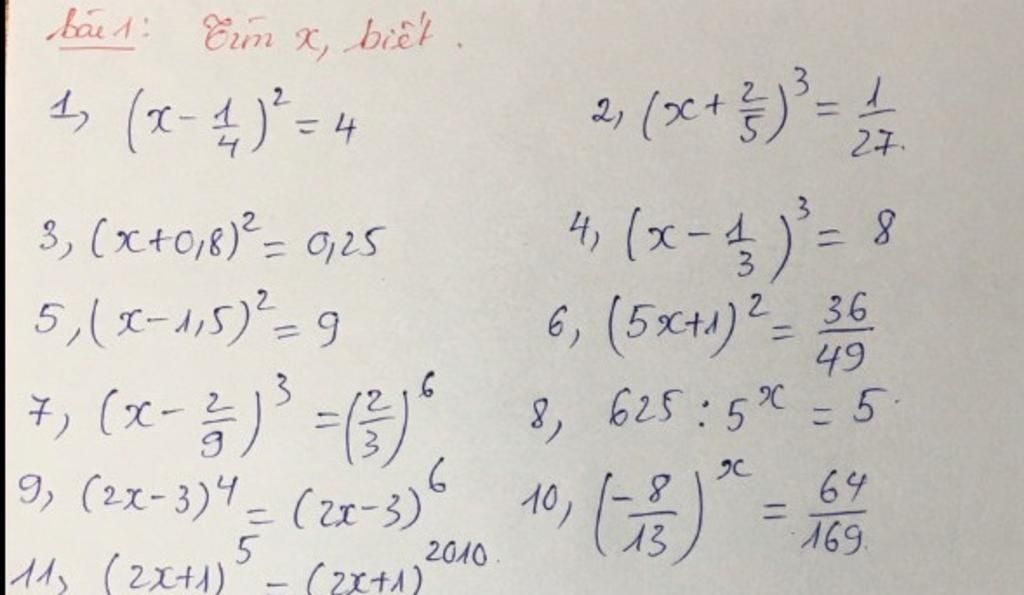 Bài 1: Tìm x, biết.
1, (x - 1/4)² = 4
2, (x + 2/5)³ = 1/27.
3, (x+0,8)² = 0,25
4, (x - 1/3)³ = 8
5, (x-1,5)² = 9
6, (5x+1)² = 36/49
7, (x - 2/9)³ = (2/3)⁶
8, 625 : 5ˣ = 5.
9, (2x-3)⁴ = (2x-3)⁶
10, (-8/13)ˣ = 64/169.
11, (2x+1)⁵ = (2x+1)²⁰¹⁰.